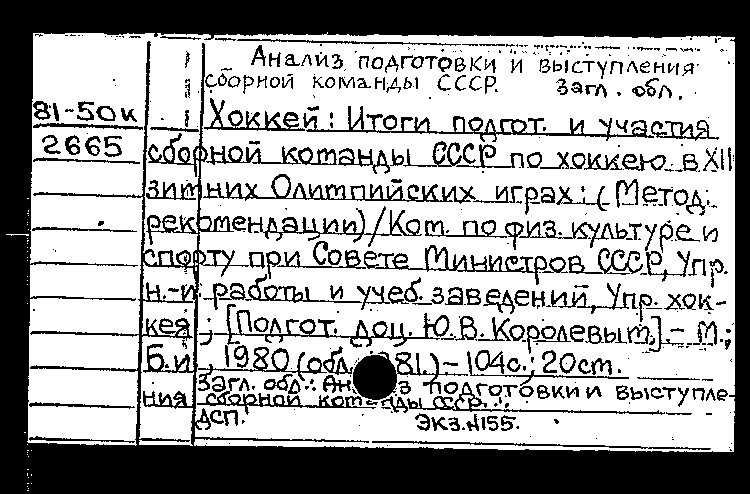 Анализ подготовки и выступления
сборной команды СССР. Загл. обл.
81-50к Хоккей: Итоги подгот. и участия
2665 сборной команды СССР по хоккею в XII
зимних Олимпийских играх: (Метод.
рекомендации)/Ком. по физ. культуре и
спорту при Совете Министров СССР, Упр.
н.-и. работы и учеб. заведений, Упр. хок-
кея; [Подгот. доц. Ю.В. Королевым]. - М.;
Б.и., 1980 (обл. 1981.) - 104с.; 20см.
Загл. обл.: Анализ подготовки и выступле-
ния сборной команды СССР.
ДСП. Экз.№155.